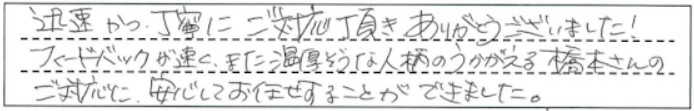 迅速かつ丁寧にご対応頂きありがとうございました!
フィードバックが速く、また温厚そうな人柄のうかがえる橋本さんの
ご対応に、安心してお任せすることができました。